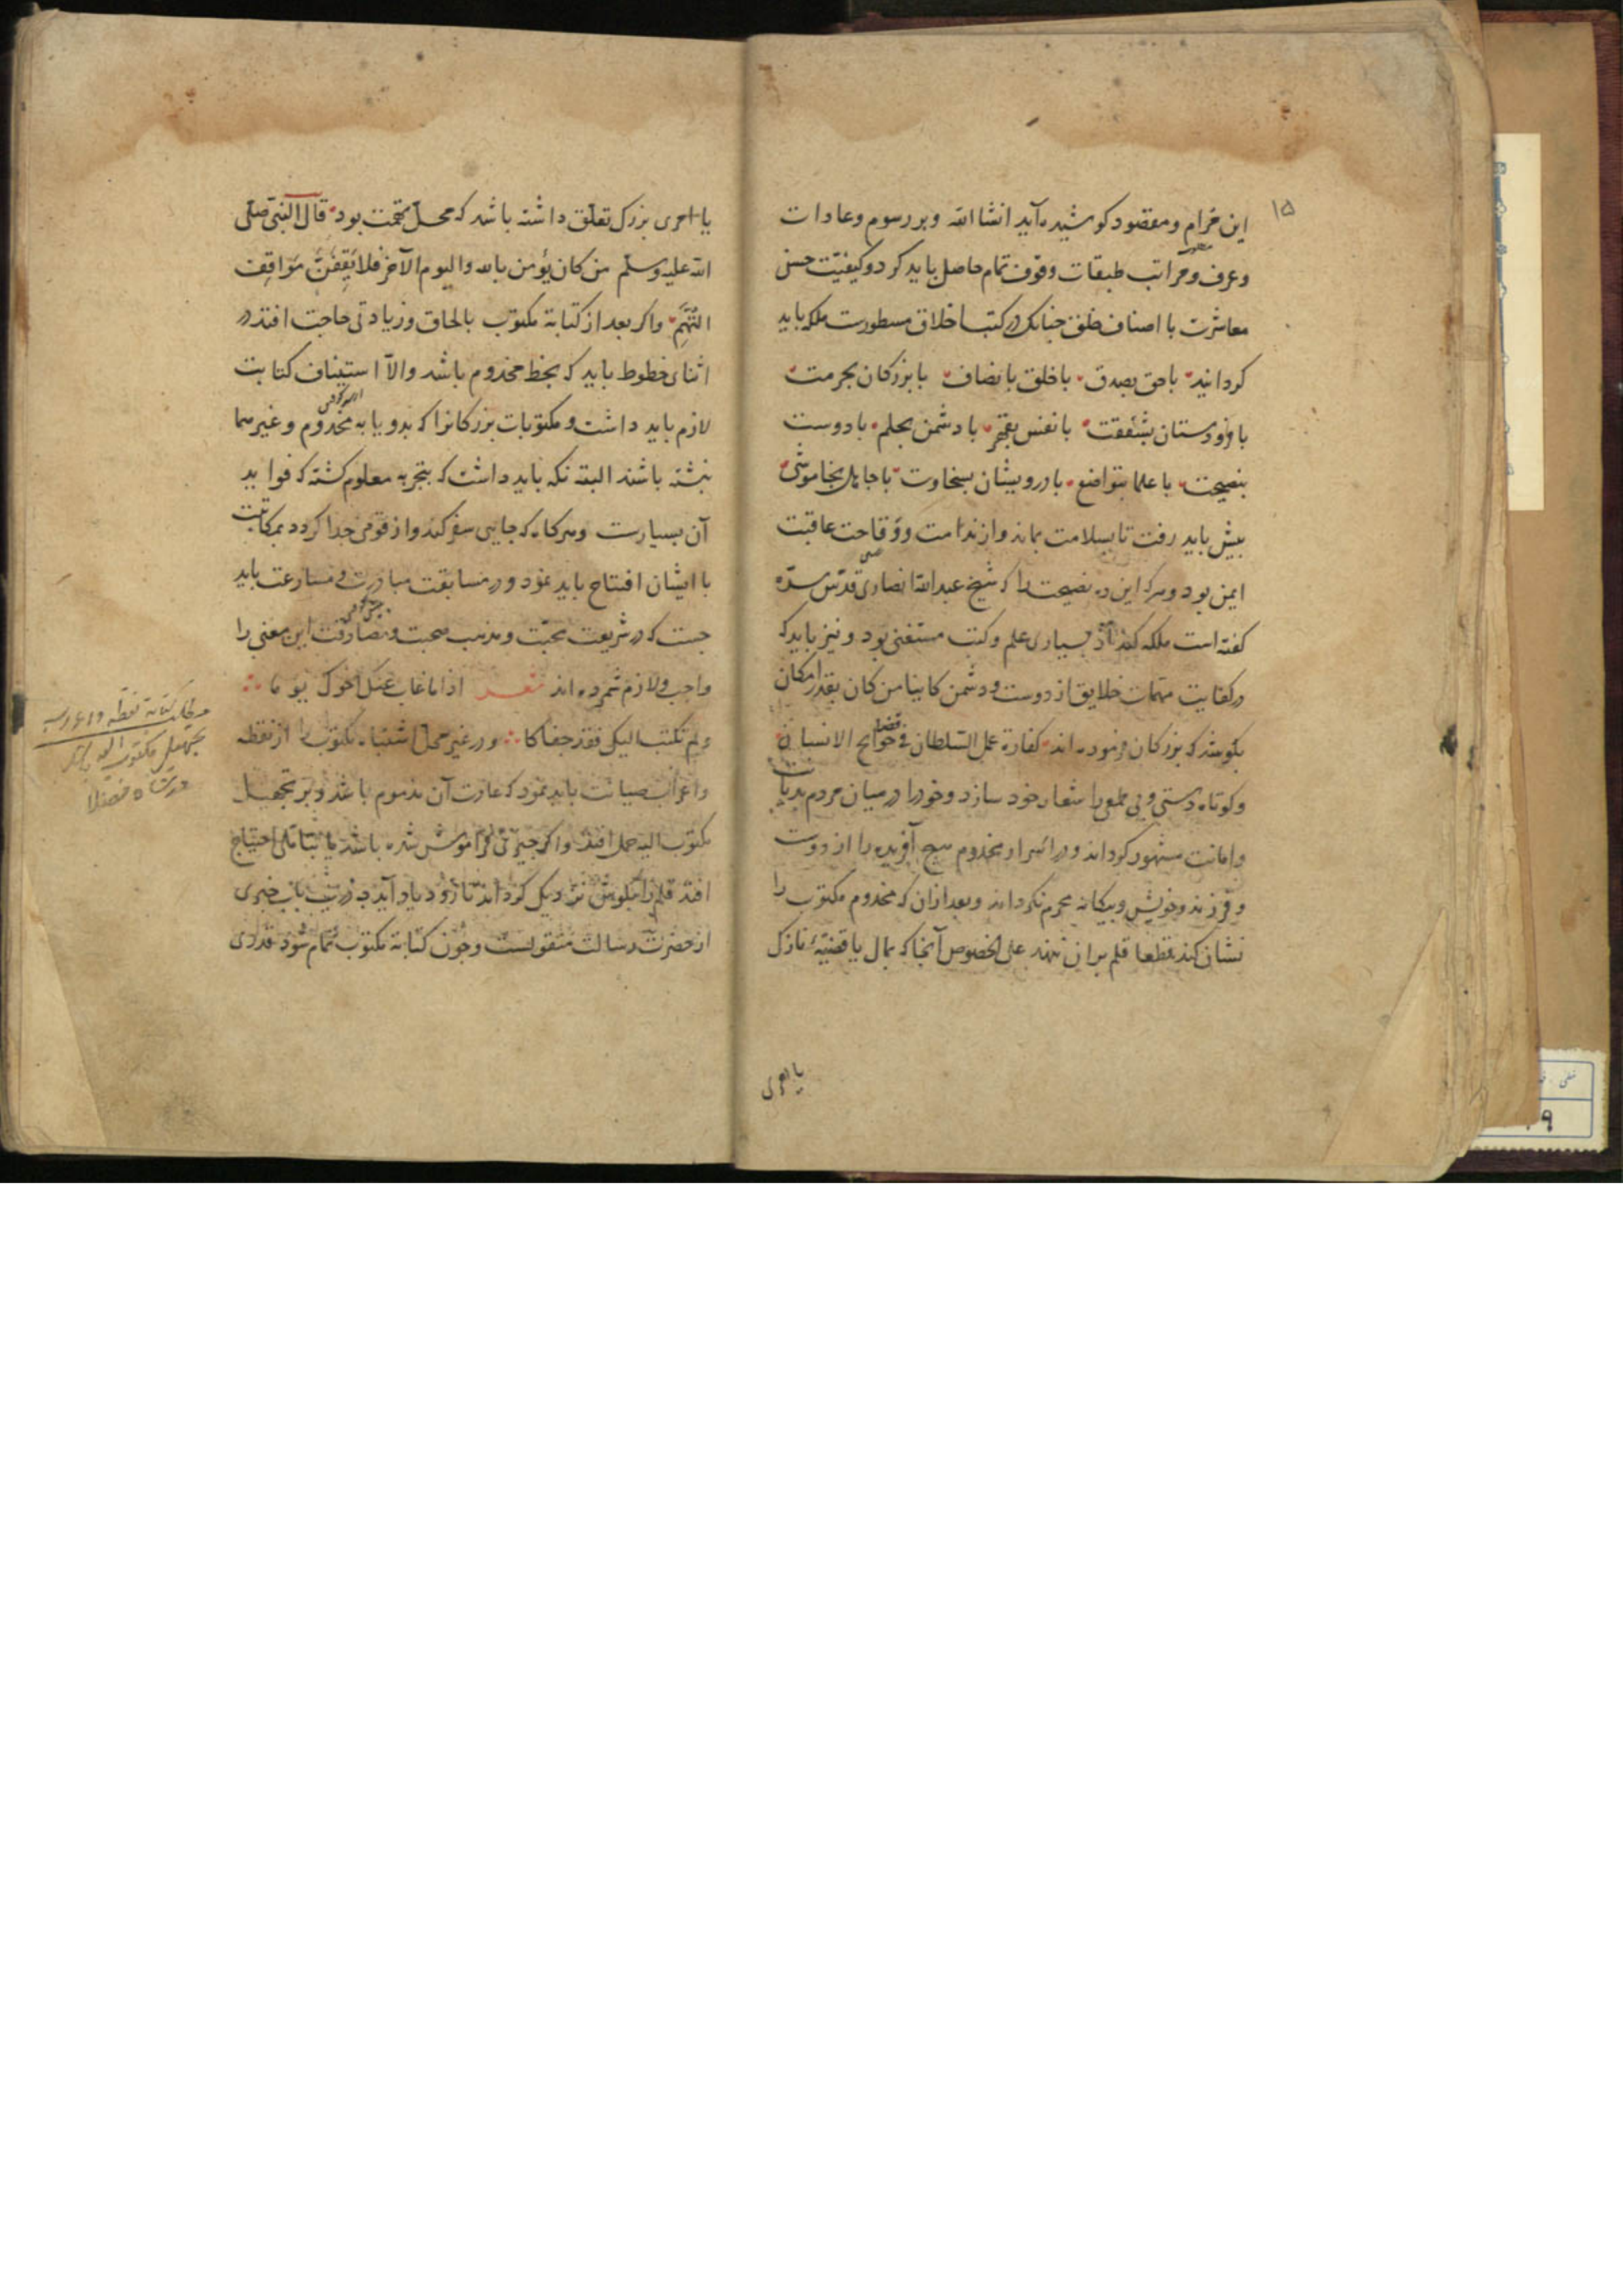 ۱۵
این مرام و مقصود کوشیده آید انشاالله و بر رسوم و عادات
و عرف و مراتب طبقات وقوف تمام حاصل باید کرد و کیفیت حسن
معاشرت با اصناف خلق چنانک در کتب اخلاق مسطورست ملکه باید
کردانید با حق بصدق با خلق بانصاف با بزرکان بحرمت
با فرودستان بشفقت با نفس بقهر با دشمن بحلم با دوست
بنصیحت با علما بتواضع با درویشان بسخاوت با جاهل بخاموشی
بیش باید رفت تا بسلامت بماند و از ندامت و وقاحت عاقبت
ایمن بود و هرکه این ده نصیحت را که شیخ عبدالله انصاری قدس سره
کفته است ملکه کند از بسیاری علم و کتب مستغنی بود و نیز باید که
در کفایت مهمات خلایق از دوست و دشمن کاینا من کان بقدر امکان
بکوشد که بزرکان فرموده اند کفارة عمل السلطان قضا حوایج الانسان
و کوتاه دستی و بی طمعی را شعار خود سازد و خود را در میان مردم بدیانت
و امانت مشهور کرداند و در اسرار مخدوم هیچ آفریده را از دوست
و فرزند و خویش و بیکانه محرم نکرداند و بعد ازان که مخدوم مکتوب را
نشان کند قطعا قلم بران ننهد علی الخصوص آنجا که بمال یا قضیه نازک
یا امری
یا امری بزرک تعلق داشته باشد که محل تهمت بود قال النبی صلی
الله علیه وسلم من کان یؤمن بالله والیوم الآخر فلا یقفن مواقف
التهم و اکر بعد از کتابة مکتوب بالحاق و زیادتی حاجت افتد در
اثنای خطوط باید که بخط مخدوم باشد والا استیناف کتابت
لازم باید داشت و مکتوبات بزرکانرا که بدو یا به مخدوم و غیرهما
نبشته باشند البته نکه باید داشت که بتجربه معلوم کشته که فواید
آن بسیارست و هرکاه که جایی سفر کند و از قومی جدا کردد بمکاتبت
با ایشان افتتاح باید نمود و در مسابقت مبادرت و مسارعت باید
جست که در شریعت محبت و مذهب صحبت و مصادقت این معنی را
واجب و لازم شمرده اند شعر اذا ما غاب عنک اخوک یوما
ولم یکتب الیک فقد جفاکا و در غیر محل اشتباه مکتوب را از نقطه
و اعراب صیانت باید نمود که عادت آن مذموم باشد و بر تجهیل
مکتوب الیه حمل افتد و اکر چیزی فراموش شده باشد یا بتاملی احتیاج
افتد قلم را بکوش نزدیک کرداند تا زود یاد آید درین باب خبری
از حضرت رسالت منقولست و چون کتابة مکتوب تمام شود قدری